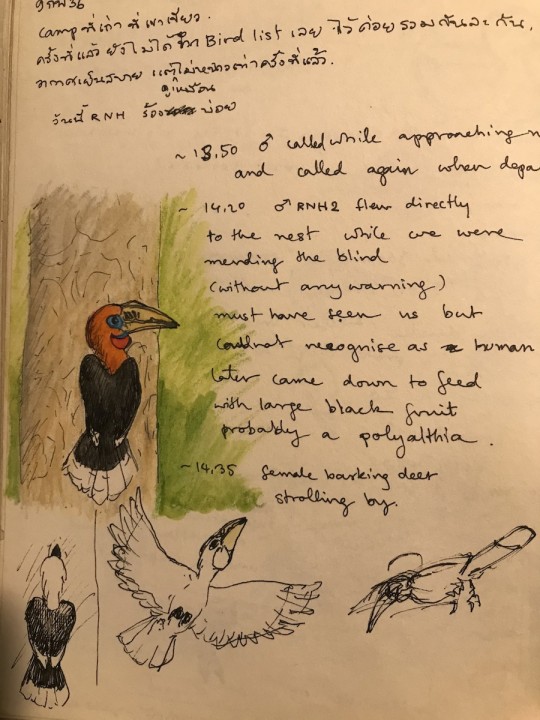 Camp ที่เก่า ที่เขาเขียว.
ครั้งที่แล้ว ยังไม่ได้ Bird list เลย ไว้ค่อยรวมกันละกัน.
อากาศเย็นสบาย แต่ไม่หนาวเท่าครั้งที่แล้ว.
วันนี้ RNH ร้อง บ่อย
~ 13.50 ♂ called while approaching
and called again when
~ 14.20 ♂ RNH2 flew directly
to the nest while we were
mending the blind
(without any warning)
must have seen us but
could not recognise as human
later came down to feed
with large black fruit
probably a polyalthia.
~14.35 female barking deer
strolling by.